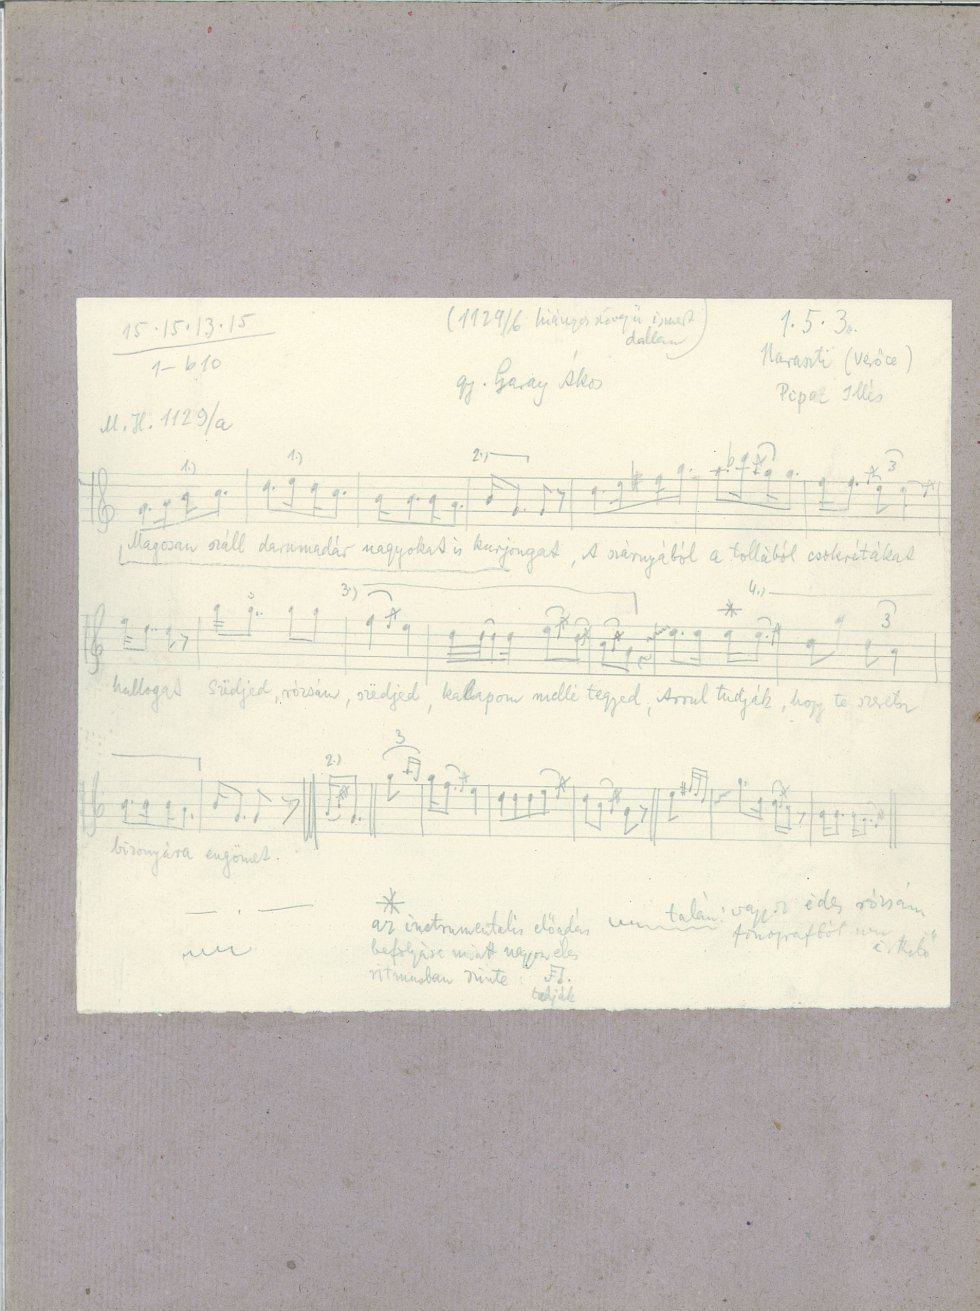 15.15.13.15
1–b10
(1129/6 hiányos szövegű ismert
dallam)
1.5.3.
Haraszti (Verőce)
gy. Garay Ákos
Pipaz Illés
M.H. 1129/a
1.) 1.) 2.) 3
Magosan száll darumadár nagyokat is kurjongat, A szárnyából a tollából csokrétákat
3.) 4.) 3
hullogat Szëdjed, rózsám, szëdjed, kallapom mellé tëgyed, Arrul tudják, hogy te szeretsz
2.) 3
bizonyára engömet.
az instrumentális előadás
befolyása miatt nagyon éles
ritmusban szinte
tudják
talán: vagy édes rózsám
fonográfból